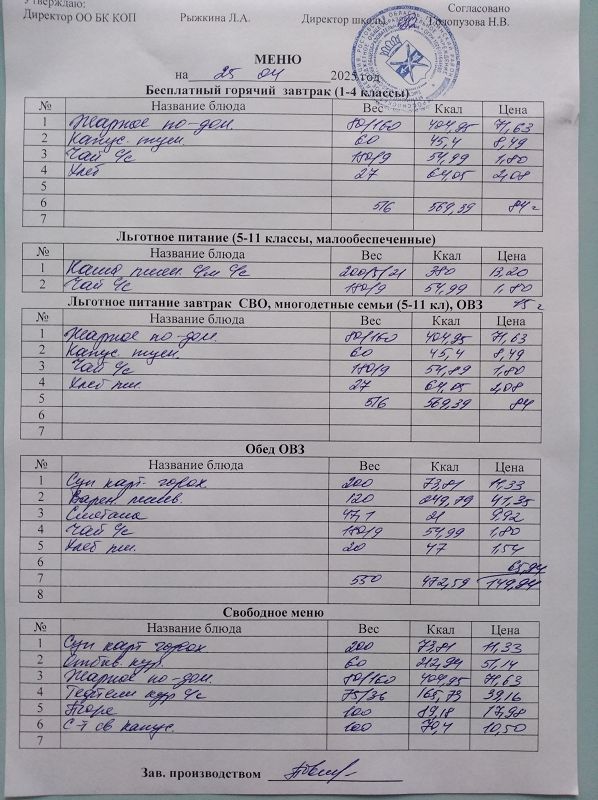 Утверждаю: Согласовано
Директор ОО БК КОП Рыжкина Л.А. Директор школы Голопузова Н.В.
МЕНЮ
на 25 04 2025 год
Бесплатный горячий завтрак (1-4 классы)
№ Название блюда Вес Ккал Цена
1 Жаркое по-дом. 80/160 404,95 71,63
2 Капус. туш. 60 45,4 8,49
3 Чай с/с 180/9 54,99 1,80
4 Хлеб 27 64,05 2,08
5
6 516 569,39 84
7
Льготное питание (5-11 классы, малообеспеченные)
№ Название блюда Вес Ккал Цена
1 Каша пшен с/м с/с 200/5/21 380 13,20
2 Чай с/с 180/9 54,99 1,80
Льготное питание завтрак СВО, многодетные семьи (5-11 кл), ОВЗ 15
№ Название блюда Вес Ккал Цена
1 Жаркое по-дом. 80/160 404,95 71,63
2 Капус. туш. 60 45,4 8,49
3 Чай с/с 180/9 54,89 1,80
4 Хлеб пш. 27 64,05 2,08
5 516 569,39 84
6
7
Обед ОВЗ
№ Название блюда Вес Ккал Цена
1 Суп карт. горох 200 73,81 11,33
2 Варен. 120 249,79 41,35
3 Сметана 47,1 21 9,92
4 Чай с/с 180/9 54,99 1,80
5 Хлеб пш. 20 47 1,54
6 65,94
7 530 472,59 149,94
8
Свободное меню
№ Название блюда Вес Ккал Цена
1 Суп карт горох. 200 73,81 11,33
2 Отбив. кур. 60 212,94 51,14
3 Жаркое по-дом. 80/160 404,95 71,63
4 Тефтели кур с/с 75/36 165,73 39,16
5 Пюре 100 89,18 17,98
6 С-т св капус. 100 70,4 10,50
7
Зав. производством